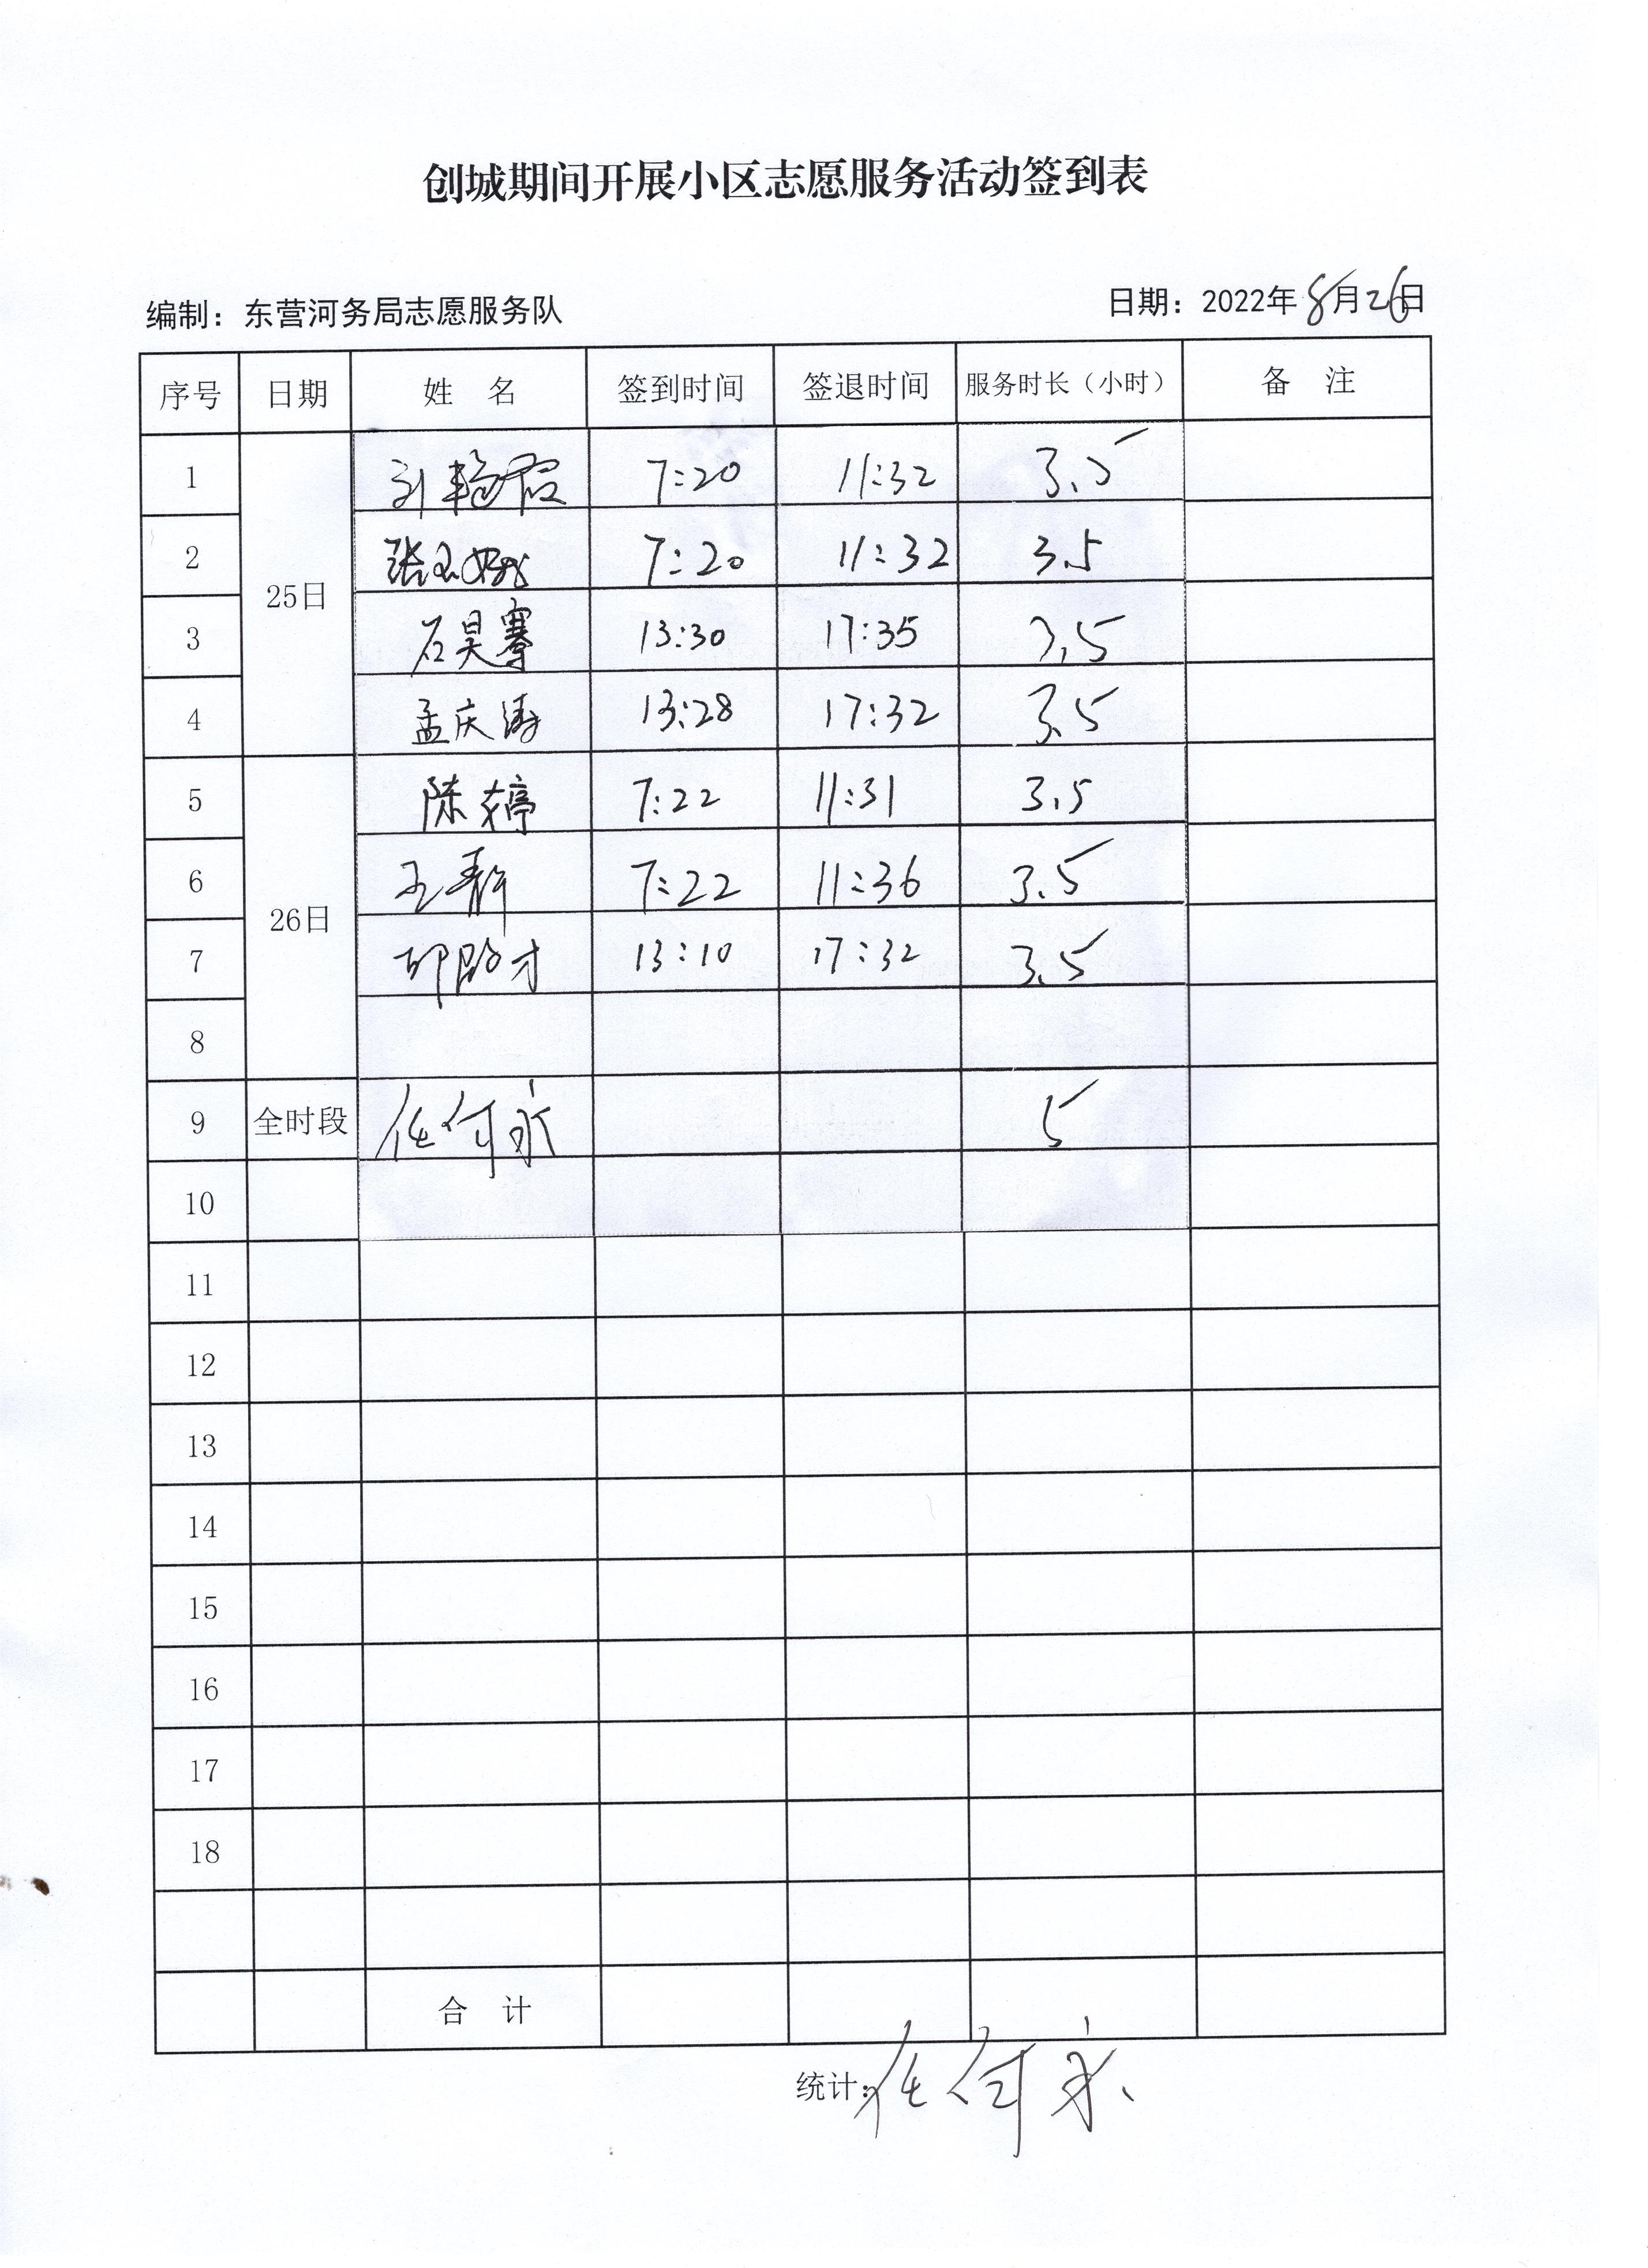 创城期间开展小区志愿服务活动签到表
编制：东营河务局志愿服务队 日期：2022年8月26日
序号 日期 姓 名 签到时间 签退时间 服务时长（小时） 备 注
1 25日 刘艳君 7:20 11:32 3.5
2 7:20 11:32 3.5
3 石昊骞 13:30 17:35 3.5
4 孟庆涛 13:28 17:32 3.5
5 26日 陈婷 7:22 11:31 3.5
6 王静 7:22 11:36 3.5
7 13:10 17:32 3.5
8
9 全时段 任何永 5
10
11
12
13
14
15
16
17
18
合 计
统计：任何永